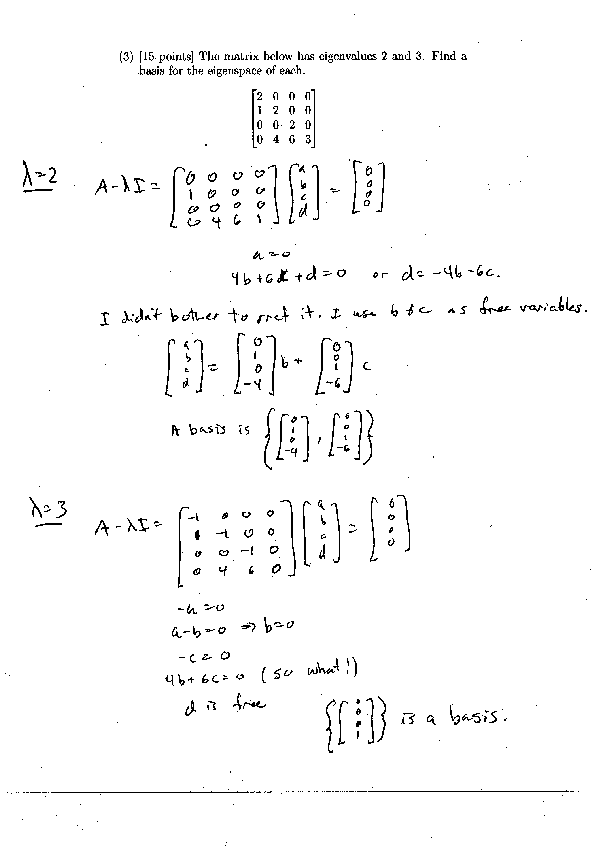 (3) [15 points] The matrix below has eigenvalues 2 and 3. Find a
basis for the eigenspace of each.
[2 0 0 0]
[1 2 0 0]
[0 0 2 0]
[0 4 6 3]
λ=2
A-λI = [0 0 0 0; 1 0 0 0; 0 0 0 0; 0 4 6 1] [a; b; c; d] = [0; 0; 0; 0]
a=0
4b+6c+d=0 or d=-4b-6c.
I didn't bother to rref it. I use b & c as free variables.
[a; b; c; d] = [0; 1; 0; -4] b + [0; 0; 1; -6] c
A basis is {[0; 1; 0; -4], [0; 0; 1; -6]}
λ=3
A-λI = [-1 0 0 0; 1 -1 0 0; 0 0 -1 0; 0 4 6 0] [a; b; c; d] = [0; 0; 0; 0]
-a=0
a-b=0 ⇒ b=0
-c=0
4b+6c=0 (so what!)
d is free
{[0; 0; 0; 1]} is a basis.